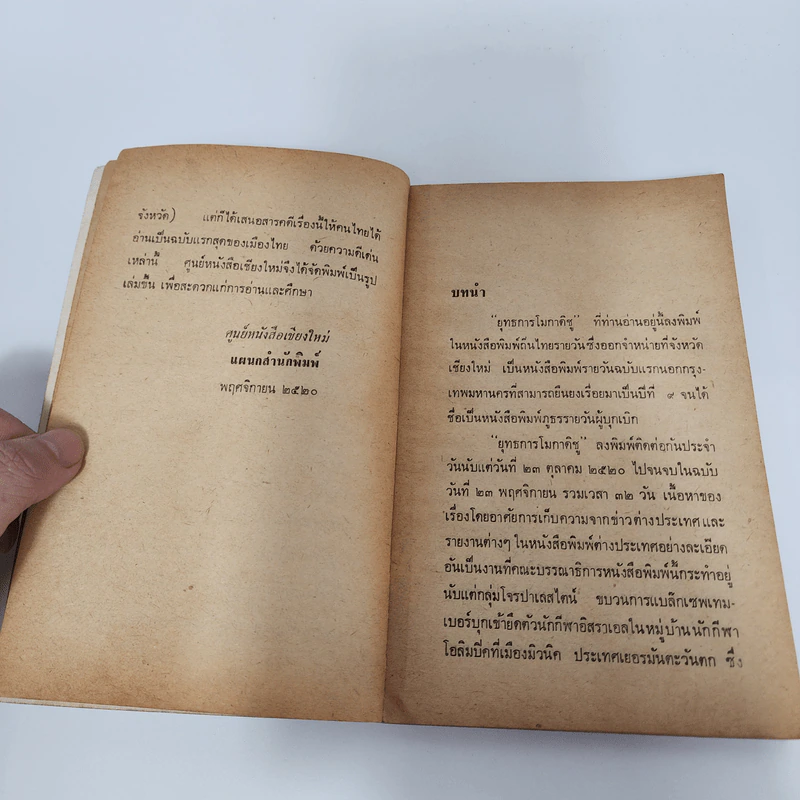 จังหวัด) แต่ก็ได้เสนอสารคดีเรื่องนี้ให้คนไทยได้
อ่านเป็นฉบับแรกสุดของเมืองไทย ด้วยความดีเด่น
เหล่านี้ ศูนย์หนังสือเชียงใหม่จึงได้จัดพิมพ์เป็นรูป
เล่มขึ้น เพื่อสะดวกแก่การอ่านและศึกษา
ศูนย์หนังสือเชียงใหม่
แผนกสำนักพิมพ์
พฤศจิกายน ๒๕๒๐
บทนำ
"ยุทธการโมกาดิชู" ที่ท่านอ่านอยู่นี้ลงพิมพ์
ในหนังสือพิมพ์ถิ่นไทยรายวันซึ่งออกจำหน่ายที่จังหวัด
เชียงใหม่ เป็นหนังสือพิมพ์รายวันฉบับแรกนอกกรุง-
เทพมหานครที่สามารถยืนยงเรื่อยมาเป็นปีที่ ๙ จนได้
ชื่อเป็นหนังสือพิมพ์ภูธรรายวันผู้บุกเบิก
"ยุทธการโมกาดิชู" ลงพิมพ์ติดต่อกันประจำ
วันนับแต่วันที่ ๒๓ ตุลาคม ๒๕๒๐ ไปจนจบในฉบับ
วันที่ ๒๓ พฤศจิกายน รวมเวลา ๓๒ วัน เนื้อหาของ
เรื่องโดยอาศัยการเก็บความจากข่าวต่างประเทศ และ
รายงานต่างๆ ในหนังสือพิมพ์ต่างประเทศอย่างละเอียด
อันเป็นงานที่คณะบรรณาธิการหนังสือพิมพ์นี้กระทำอยู่
นับแต่กลุ่มโจรปาเลสไตน์ ขบวนการแบล๊กเซพเทม-
เบอร์บุกเข้ายึดตัวนักกีฬาอิสราเอลในหมู่บ้านนักกีฬา
โอลิมปิคที่เมืองมิวนิค ประเทศเยอรมันตะวันตก ซึ่ง